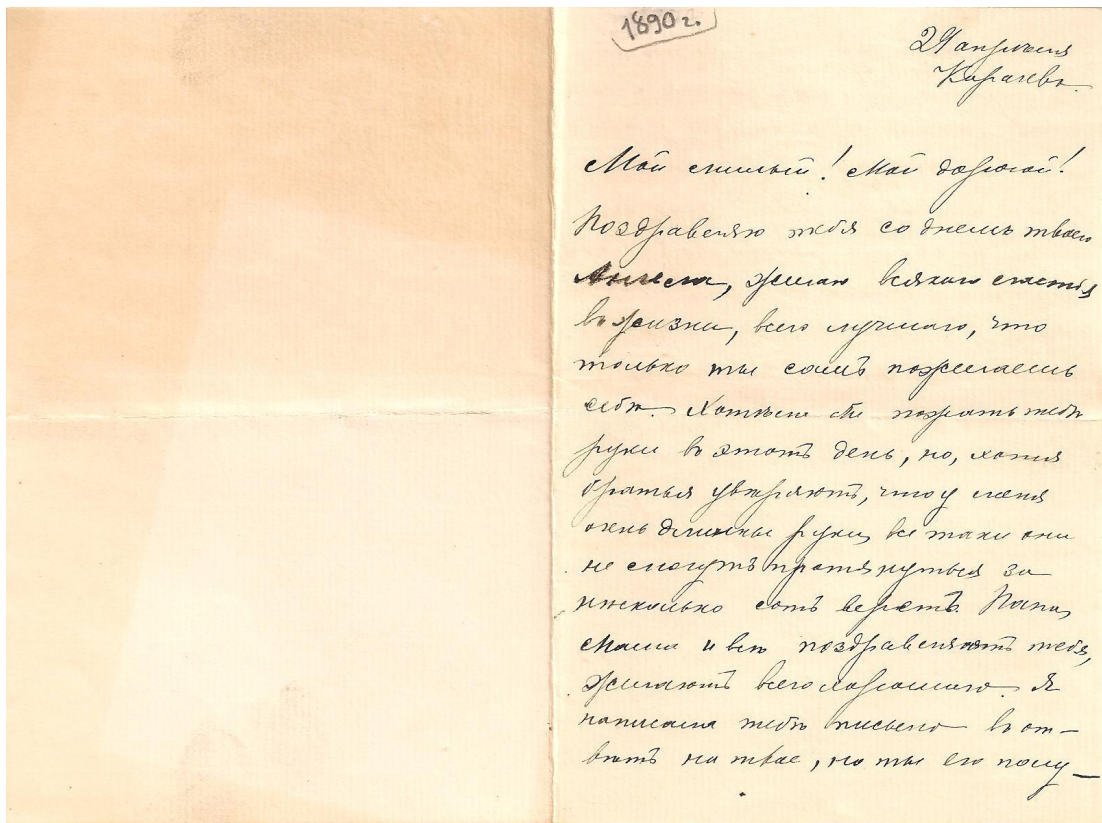 1890 г.
29 апрѣля
Карачевъ.
Мой милый! Мой дорогой!
Поздравляю тебя со днемъ твоего
Ангела, желаю всякаго счастья
въ жизни, всего лучшаго, что
только ты самъ пожелаешь
себѣ. Хотѣла бы пожать тебѣ
руки въ этотъ день, но, хотя
братья увѣряютъ, что у меня
очень длинные руки, все таки они
не смогутъ протянуться за
нѣсколько сотъ верстъ. Папа,
мама и всѣ поздравляютъ тебя,
желаютъ всего хорошаго. Я
написала тебѣ письмо въ от-
вѣтъ на твое, но ты его полу-